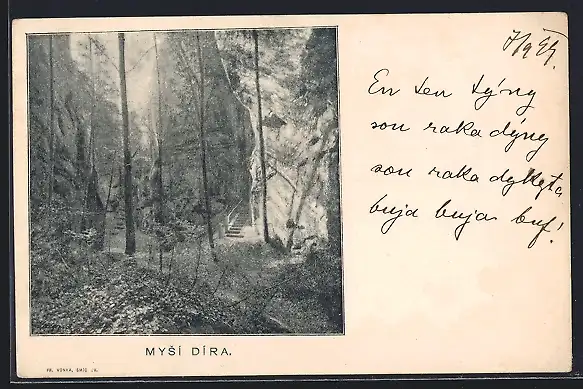 7/9 99.
En ten týny
sou raka dýny
sou raka dyketa
buja buja buf!
MYŠÍ DÍRA.
FR. VONKA, SMÍŠ. JK.